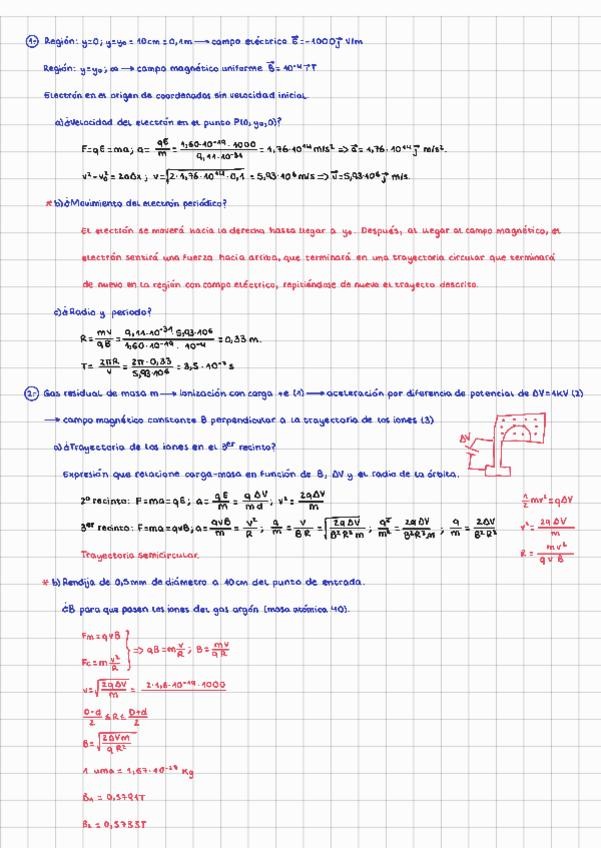 1- Región: y=0; y=y₀ = 10cm = 0,1m → campo eléctrico E⃗=-1000j⃗ V/m
Región: y=y₀; ∞ → campo magnético uniforme B⃗= 10⁻⁴ T
Electrón en el origen de coordenadas sin velocidad inicial.
a) ¿Velocidad del electrón en el punto P(0, y₀, 0)?
F=qE=ma; a= qE/m = 1,60·10⁻¹⁹·1000/9,11·10⁻³¹ = 1,76·10¹⁴ m/s² ⇒ a⃗= 1,76·10¹⁴ j⃗ m/s².
v²-v₀²= 2aΔx; v=√2·1,76·10¹⁴·0,1 = 5,93·10⁶ m/s ⇒ v⃗=5,93·10⁶ j⃗ m/s.
* b) ¿Movimiento del electrón periódico?
El electrón se moverá hacia la derecha hasta llegar a y₀. Después, al llegar al campo magnético, el
electrón sentirá una fuerza hacia arriba, que terminará en una trayectoria circular que terminará
de nuevo en la región con campo eléctrico, repitiéndose de nuevo el trayecto descrito.
c) ¿Radio y periodo?
R= mv/qB = 9,11·10⁻³¹·5,93·10⁶/1,60·10⁻¹⁹·10⁻⁴ = 0,33 m.
T= 2πR/v = 2π·0,33/5,93·10⁶ = 3,5·10⁻⁷ s
2- Gas residual de masa m → ionización con carga +e (1) → aceleración por diferencia de potencial de ΔV=1KV (2)
→ campo magnético constante B perpendicular a la trayectoria de los iones (3)
a) ¿Trayectoria de los iones en el 3er recinto?
ΔV
Expresión que relacione carga-masa en función de B, ΔV y el radio de la órbita.
2º recinto: F=ma=qE; a= qE/m = qΔV/md; v²= 2qΔV/m
½mv²=qΔV
3er recinto: F=ma=qvB; a= qvB/m = v²/R; q/m = v/BR = √2qΔV/B²R²m; q²/m² = 2qΔV/B²R²m; q/m = 2ΔV/B²R²
v²= 2qΔV/m
Trayectoria semicircular.
R= mv²/qvB
* b) Rendija de 0,5mm de diámetro a 10cm del punto de entrada.
¿B para que pasen los iones del gas argón (masa atómica 40).
Fm=qvB
Fc=m v²/R
⇒ qB=m v/R; B= mv/qR
v=√2qΔV/m = 2·1,6·10⁻¹⁹·1000
D-d/2 ≤ R ≤ D+d/2
B=√2ΔVm/qR²
1 uma = 1,67·10⁻²⁷ Kg
B₁ = 0,5791T
B₂ = 0,5733T